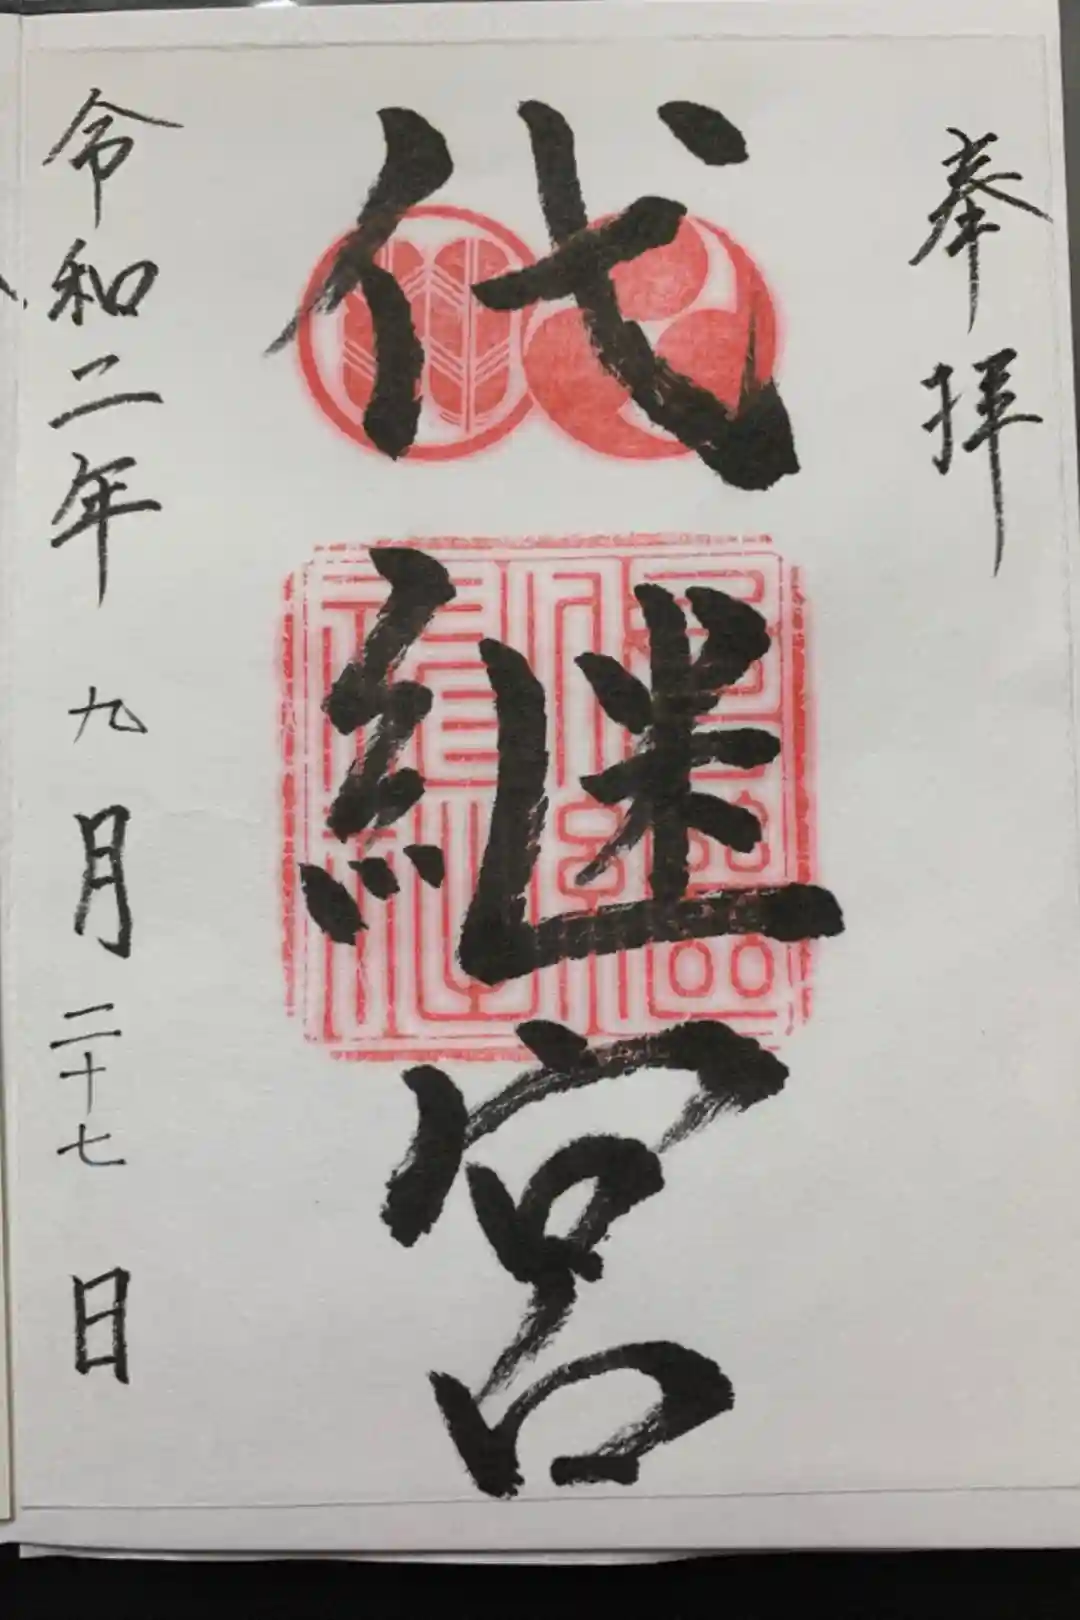 奉拝
代継宮
令和二年九月二十七日